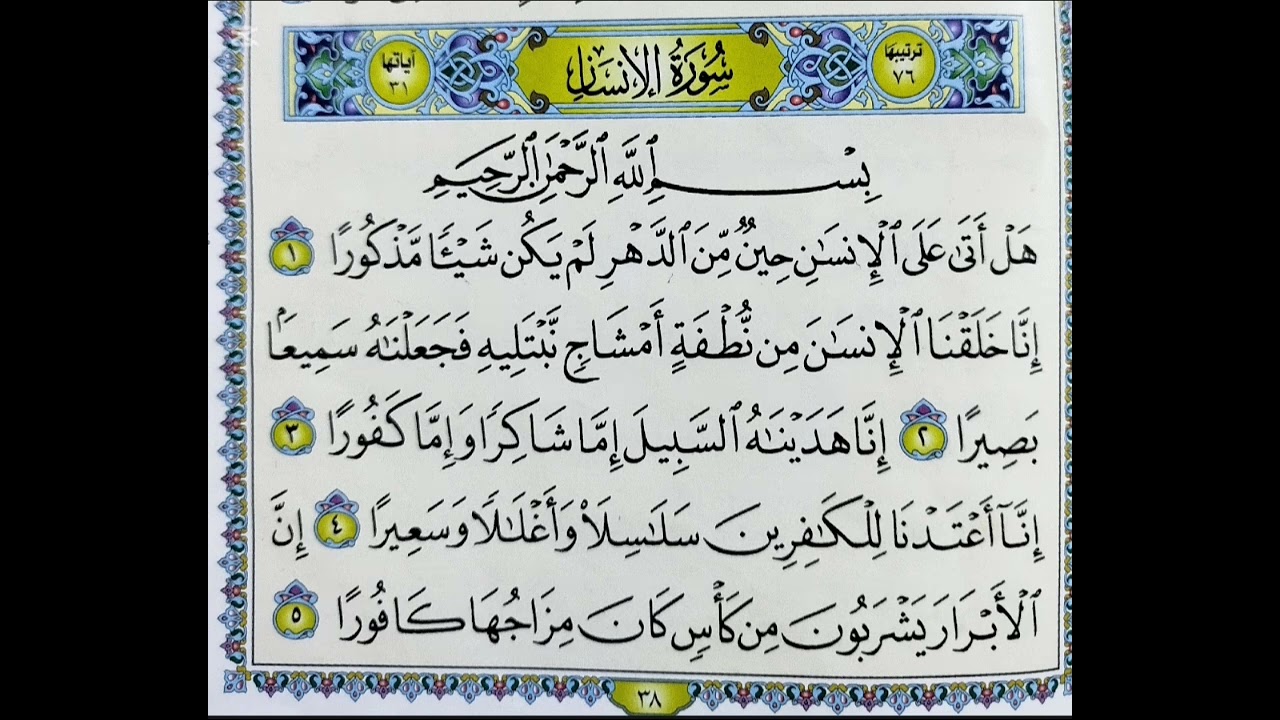 ترتيبها ٧٦ سُورَةُ الإِنسَان آياتها ٣١
بِسْمِ ٱللَّهِ ٱلرَّحْمَٰنِ ٱلرَّحِيمِ
هَلْ أَتَىٰ عَلَى ٱلْإِنسَٰنِ حِينٌ مِّنَ ٱلدَّهْرِ لَمْ يَكُن شَيْـًٔا مَّذْكُورًا ١
إِنَّا خَلَقْنَا ٱلْإِنسَٰنَ مِن نُّطْفَةٍ أَمْشَاجٍ نَّبْتَلِيهِ فَجَعَلْنَٰهُ سَمِيعًۢا
بَصِيرًا ٢ إِنَّا هَدَيْنَٰهُ ٱلسَّبِيلَ إِمَّا شَاكِرًا وَإِمَّا كَفُورًا ٣
إِنَّآ أَعْتَدْنَا لِلْكَٰفِرِينَ سَلَٰسِلَا۟ وَأَغْلَٰلًا وَسَعِيرًا ٤ إِنَّ
ٱلْأَبْرَارَ يَشْرَبُونَ مِن كَأْسٍ كَانَ مِزَاجُهَا كَافُورًا ٥
٣٨